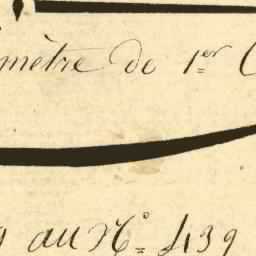 mètre de 1.er
au N.o 439